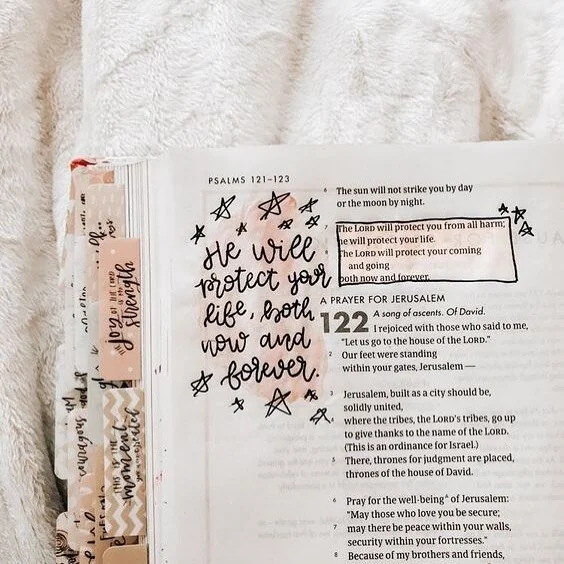 PSALMS 121–123
He will
protect your
life, both
now and
forever.
6 The sun will not strike you by day
or the moon by night.
7 The LORD will protect you from all harm;
he will protect your life.
The LORD will protect your coming
and going
both now and forever.
A PRAYER FOR JERUSALEM
122 A song of ascents. Of David.
I rejoiced with those who said to me,
"Let us go to the house of the LORD."
2 Our feet were standing
within your gates, Jerusalem —
3 Jerusalem, built as a city should be,
solidly united,
4 where the tribes, the LORD's tribes, go up
to give thanks to the name of the LORD.
(This is an ordinance for Israel.)
5 There, thrones for judgment are placed,
thrones of the house of David.
6 Pray for the well-being^ of Jerusalem:
"May those who love you be secure;
7 may there be peace within your walls,
security within your fortresses."
8 Because of my brothers and friends,
THE
JOY OF THE LORD
IS MY
strength
THIS IS THE
moment